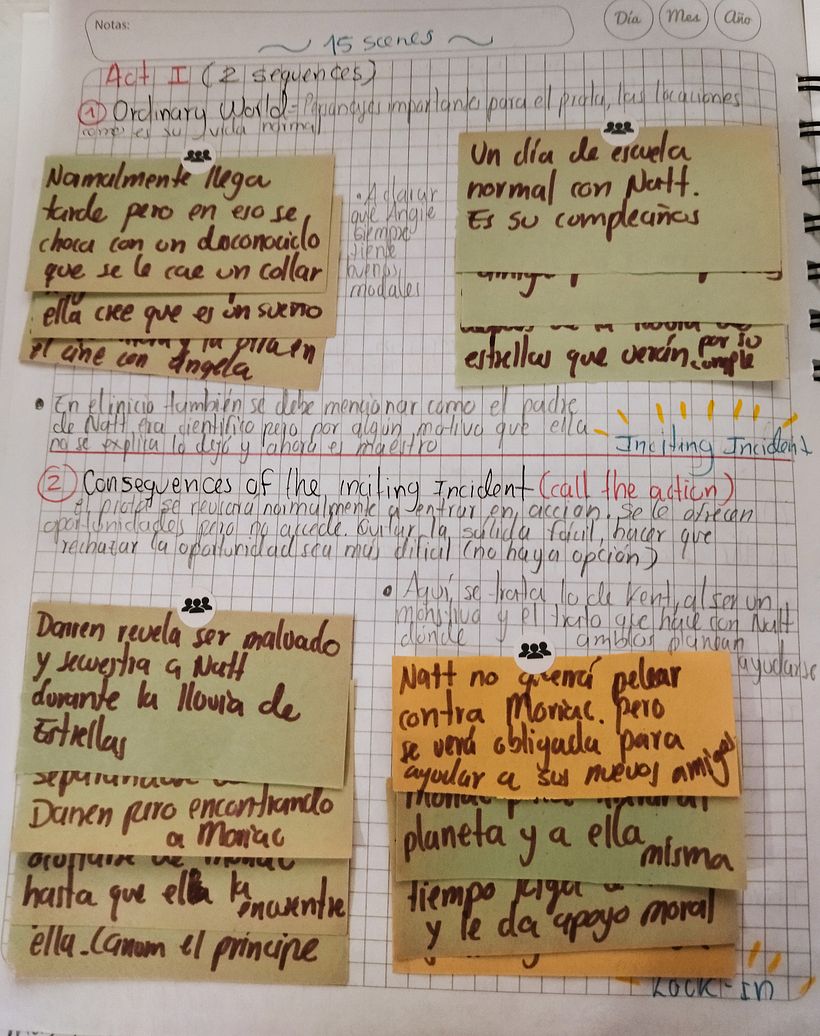 Notas:
Día
Mes
Año
~ 15 scenes ~
Act I (2 sequences)
① Ordinary World = importante para el prota, las locaciones
como es su vida normal
Namalmente llega
tarde pero en eso se
choca con un doconocido
que se le cae un collar
ella cree que es un sueño
el cine con ángela
• Aclarar
que Angie
siempre
tiene
buenos
modales
Un día de escuela
normal con Natt.
Es su compleaños
estrellas que verán por su
cumple
• En el inicio también se debe mencionar como el padre
de Natt era cientifico pero por algún motivo que ella
no se explica lo dejó y ahora es maestro
Inciting Incident
② Consequences of the inciting Incident (call the action)
el prota se reusara normalmente a entrar en acción. Se le ofrecen
oportunidades pero no accede. Evitar la salida fácil, hacer que
rechazar la oportunidad sea mas dificil (no haya opción)
• Aquí, se trata lo de Kent, al ser un
y el trato que hace con Natt
donde ambos planean
ayudarse
Darren revela ser malvado
y secuestra a Natt
durante la lluvia de
Estrellas
Darren pero encontrando
a Moniac
hasta que ella la
encuentre
ella. (Canom el príncipe
Natt no querrá pelear
contra Moniac. Pero
se verá obligada para
ayudar a sus nuevos amigos
planeta y a ella
misma
tiempo
y le da apoyo moral
Lock-In